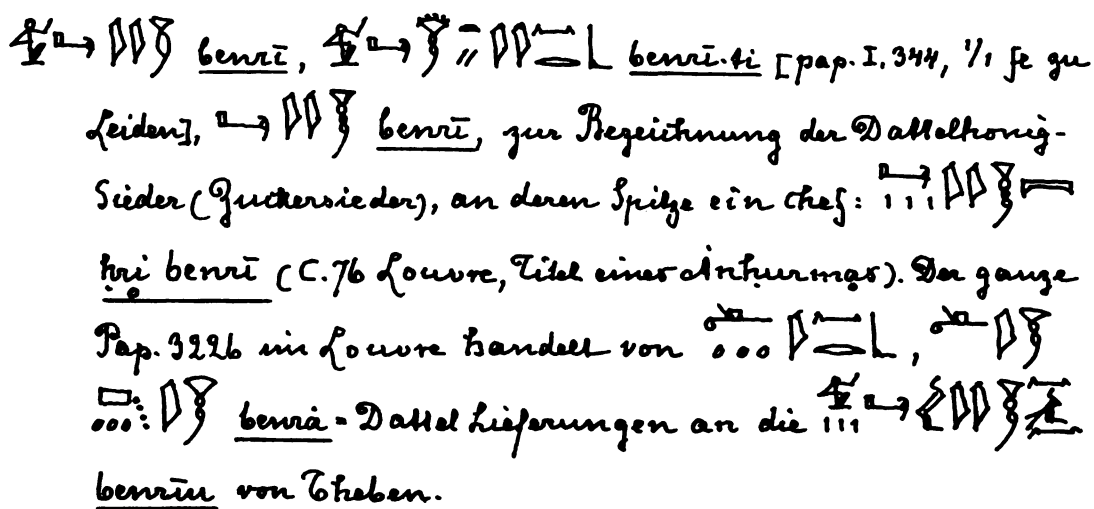 benrī, benrī·ti [pap. I, 344, 1/1 fc zu
Leiden], benrī, zur Bezeichnung der Dattelhonig-
Sieder (Zuckersieder), an deren Spitze ein Chef:
ḥri benrī (C. 76 Louvre, Titel eines Anḥurmas). Der ganze
Pap. 3226 im Louvre handelt von ,
benrȧ = Dattel Lieferungen an die
benrīu von Theben.